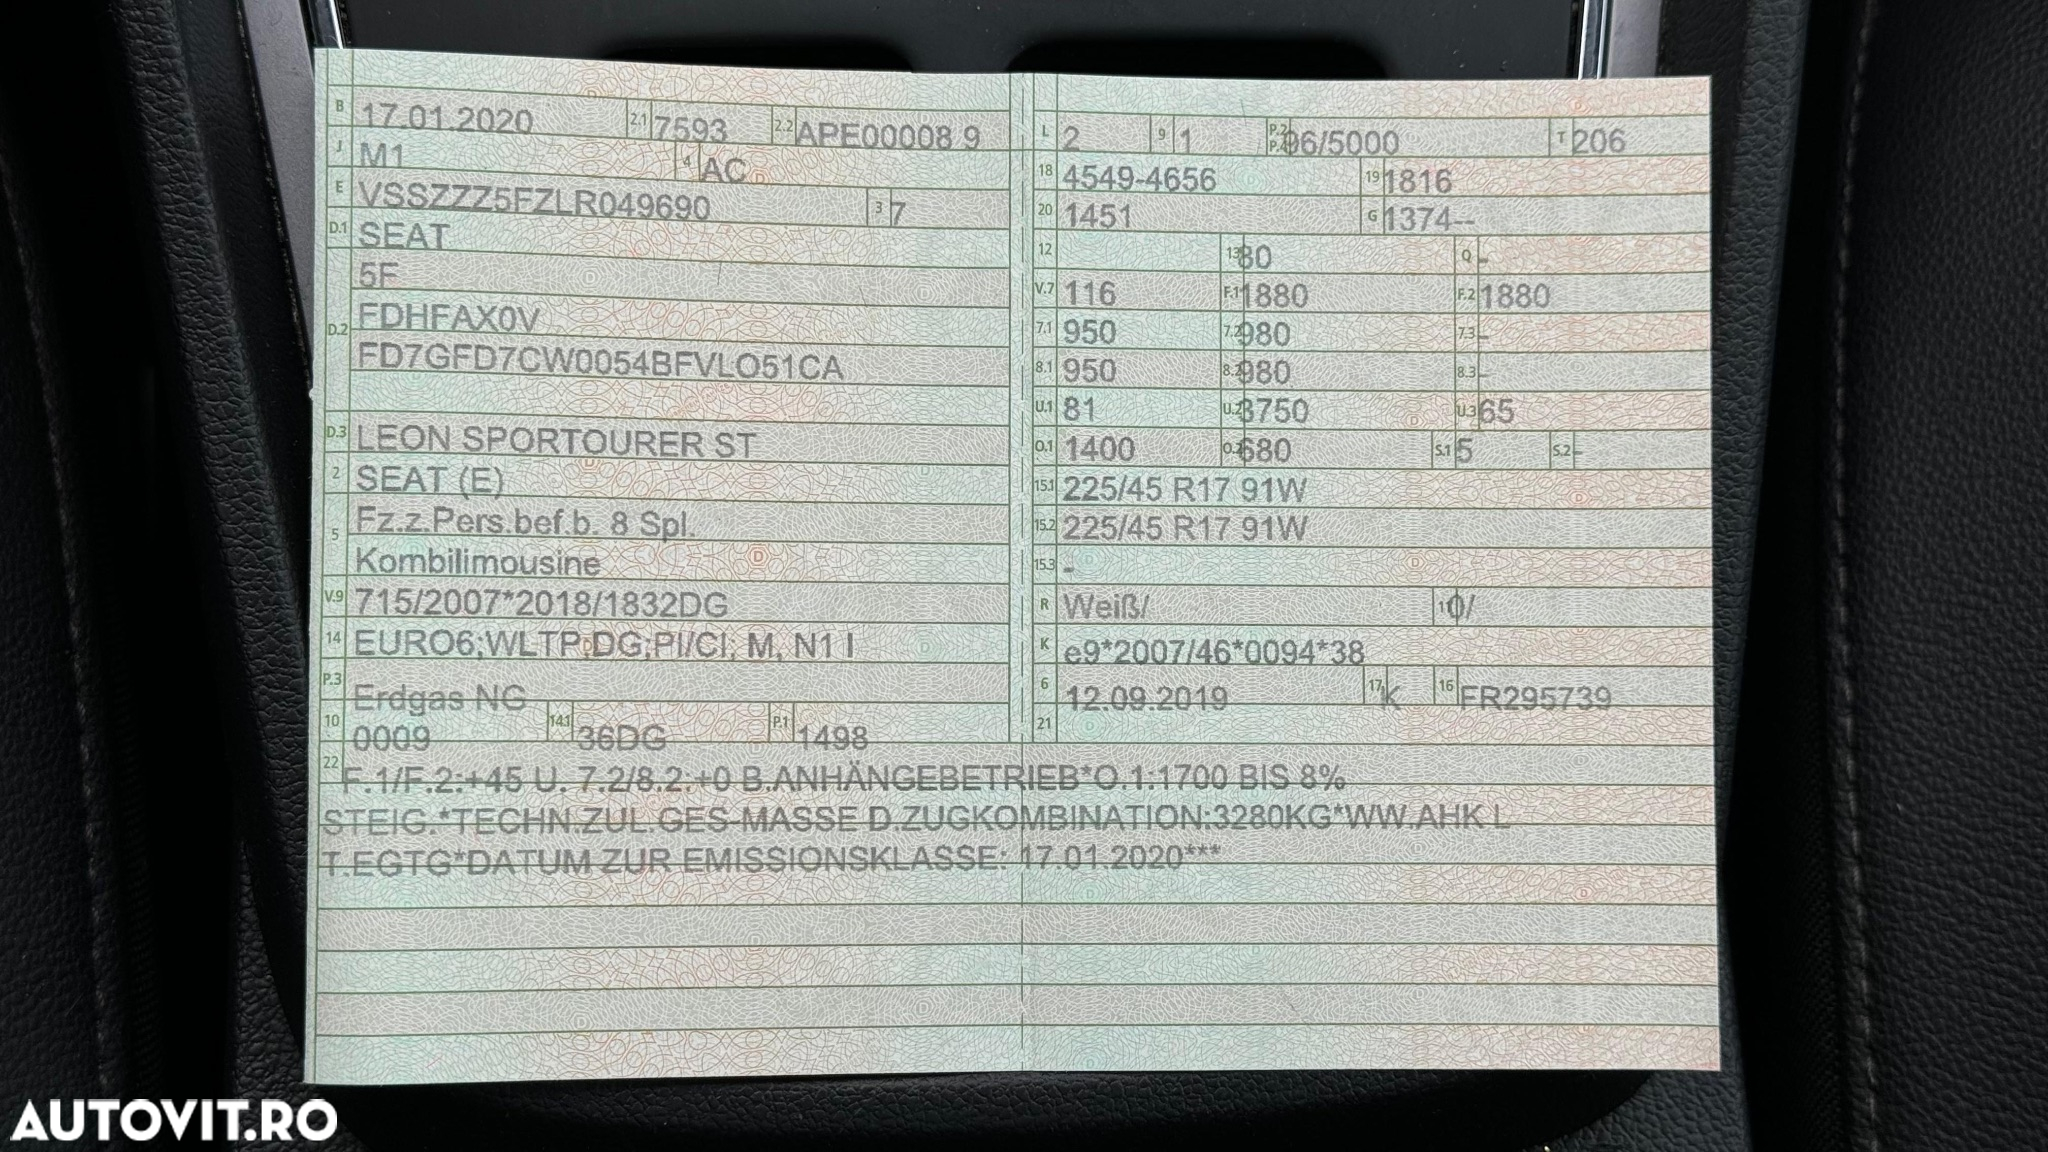 B 17.01.2020 2.1 7593 2.2 APE00008 9
J M1 4 AC
E VSSZZZ5FZLR049690 3 7
D.1 SEAT
5F
D.2 FDHFAX0V
FD7GFD7CW0054BFVLO51CA
D.3 LEON SPORTOURER ST
2 SEAT (E)
5 Fz.z.Pers.bef.b. 8 Spl.
Kombilimousine
V.9 715/2007*2018/1832DG
14 EURO6;WLTP;DG;PI/CI; M, N1 I
P.3 Erdgas NG
10 0009 14.1 36DG P.1 1498
L 2 9 1 P.2 P.4 96/5000 T 206
18 4549-4656 19 1816
20 1451 G 1374--
12 13 80 Q -
V.7 116 F.1 1880 F.2 1880
7.1 950 7.2 980 7.3 -
8.1 950 8.2 980 8.3 -
U.1 81 U.2 3750 U.3 65
O.1 1400 O.2 680 S.1 5 S.2 -
15.1 225/45 R17 91W
15.2 225/45 R17 91W
15.3 -
R Weiß/ 11 0/
K e9*2007/46*0094*38
6 12.09.2019 17 K 16 FR295739
21
22 F.1/F.2:+45 U. 7.2/8.2:+0 B.ANHÄNGEBETRIEB*O.1:1700 BIS 8%
STEIG.*TECHN.ZUL.GES-MASSE D.ZUGKOMBINATION:3280KG*WW.AHK L
T.EGTG*DATUM ZUR EMISSIONSKLASSE: 17.01.2020***
AUTOVIT.RO